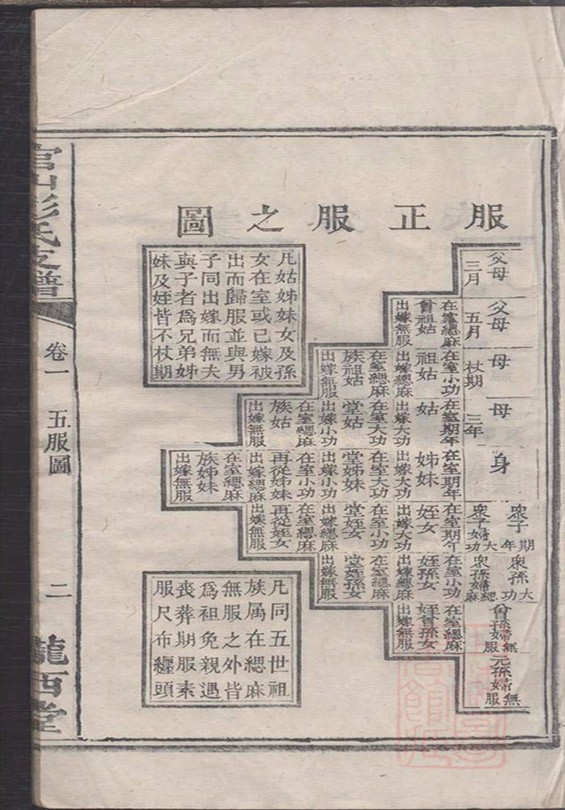 服正服之圖
父母
三月
父母
五月
母
杖期
母
三年
身
衆子期年
衆子婦大功
衆孫大功
衆孫婦緦麻
曾孫婦無服
元孫婦無服
在室緦麻
曾祖姑
出嫁無服
在室小功
祖姑
出嫁緦麻
在室緦麻
族祖姑
出嫁無服
在室期年
姑
出嫁大功
在室大功
堂姑
出嫁小功
在室緦麻
族姑
出嫁無服
在室期年
姊妹
出嫁大功
在室大功
堂姊妹
出嫁小功
在室小功
再從姊妹
出嫁緦麻
在室緦麻
族姊妹
出嫁無服
在室期年
姪女
出嫁大功
在室小功
堂姪女
出嫁緦麻
在室緦麻
再從姪女
出嫁無服
在室小功
姪孫女
出嫁緦麻
在室緦麻
堂姪孫女
出嫁無服
在室緦麻
姪曾孫女
出嫁無服
凡姑姊妹女及孫
女在室或已嫁被
出而歸服並與男
子同出嫁而無夫
與子者爲兄弟姊
妹及姪皆不杖期
凡同五世祖
族属在緦麻
無服之外皆
爲祖免親遇
喪葬期服素
服尺布纏頭
官山彭氏支譜
卷一
五服圖
二
隴西堂